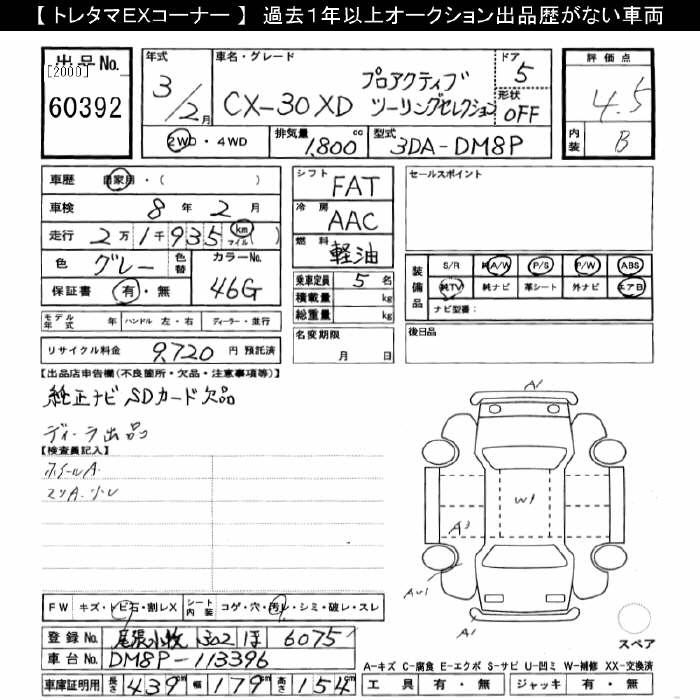 【 トレタマEXコーナー 】 過去1年以上オークション出品歴がない車両
出品No.
[2000]
60392
年式
3/2月
車名・グレード
CX-30 XD
プロアクティブ
ツーリングセレクション
ドア
5
形状
OFF
評価点
4.5
内装
B
2WD・4WD
排気量
1,800 cc
型式
3DA-DM8P
車歴 自家用・( )
車検 8年 2月
走行 2万1千935 km マイル( )
色 グレー 色替
カラーNo.
46G
保証書 有・無
モデル年式 年 ハンドル 左・右 ディーラー・並行
リサイクル料金 9,720 円 預託済
シフト
FAT
冷房
AAC
燃料
軽油
乗車定員 5 名
積載量 kg
総重量 kg
名変期限
月 日
セールスポイント
装備品
S/R 純A/W P/S P/W ABS
純TV 純ナビ 革シート 外ナビ エアB
ナビ型番:
後日品
【出品店申告欄(不良箇所・欠品・注意事項等)】
純正ナビSDカード欠品
ディーラ出品
【検査員記入】
ホイールA.
スリA.小レ
FW キズ・トビ石・割レX シート内装 コゲ・穴・汚レ・シミ・破レ・スレ
登録No. 尾張小牧 302 ほ 6075
車台No. DM8P-113396
車庫証明用 長さ 439 cm 幅 179 cm 高さ 154 cm
A1
W1
A3
AU1
A1
スペア
A-キズ C-腐食 E-エクボ S-サビ U-凹ミ W-補修 XX-交換済
工具 有・無 ジャッキ 有・無